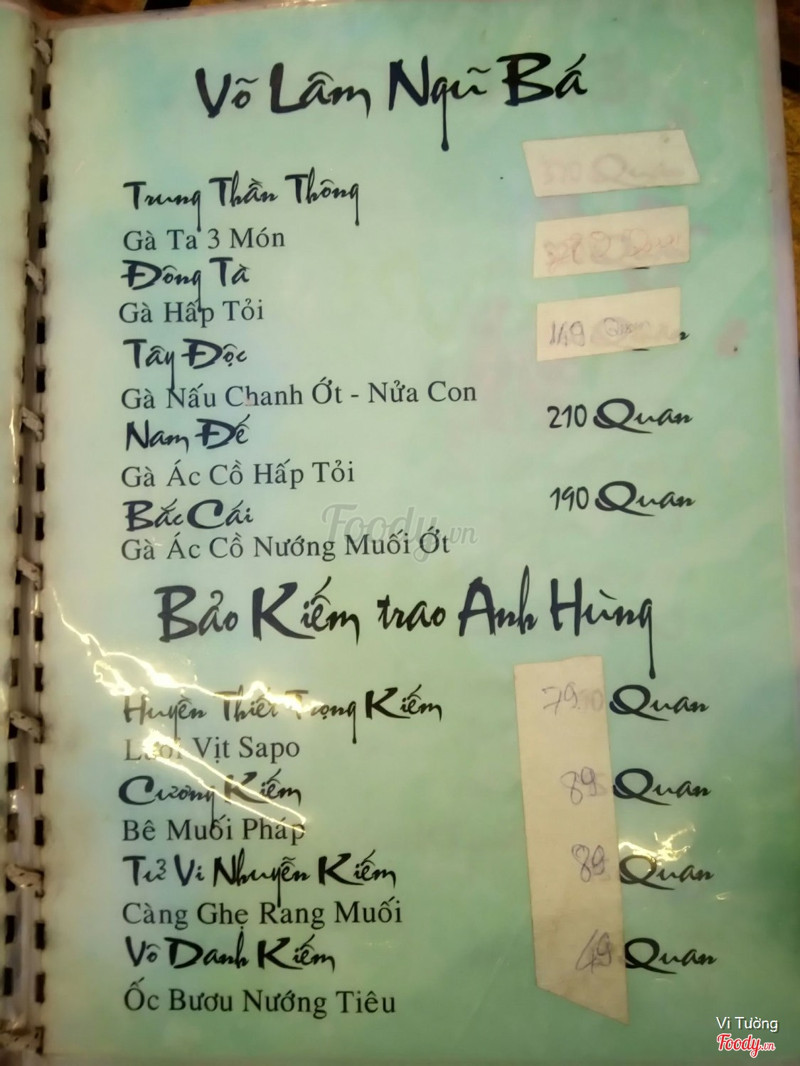 Võ Lâm Ngũ Bá
Trung Thần Thông
Gà Ta 3 Món
Đông Tà
Gà Hấp Tỏi
Tây Độc 149
Gà Nấu Chanh Ớt - Nửa Con
Nam Đế 210 Quan
Gà Ác Cồ Hấp Tỏi
Bắc Cái 190 Quan
Gà Ác Cồ Nướng Muối Ớt
Foody.vn
Bảo Kiếm trao Anh Hùng
Huyền Thiết Trọng Kiếm 79 Quan
Lưỡi Vịt Sapo
Cương Kiếm 89 Quan
Bê Muối Pháp
Tử Vi Nhuyễn Kiếm 89 Quan
Càng Ghẹ Rang Muối
Vô Danh Kiếm 49 Quan
Ốc Bươu Nướng Tiêu
Vi Tường
Foody.vn